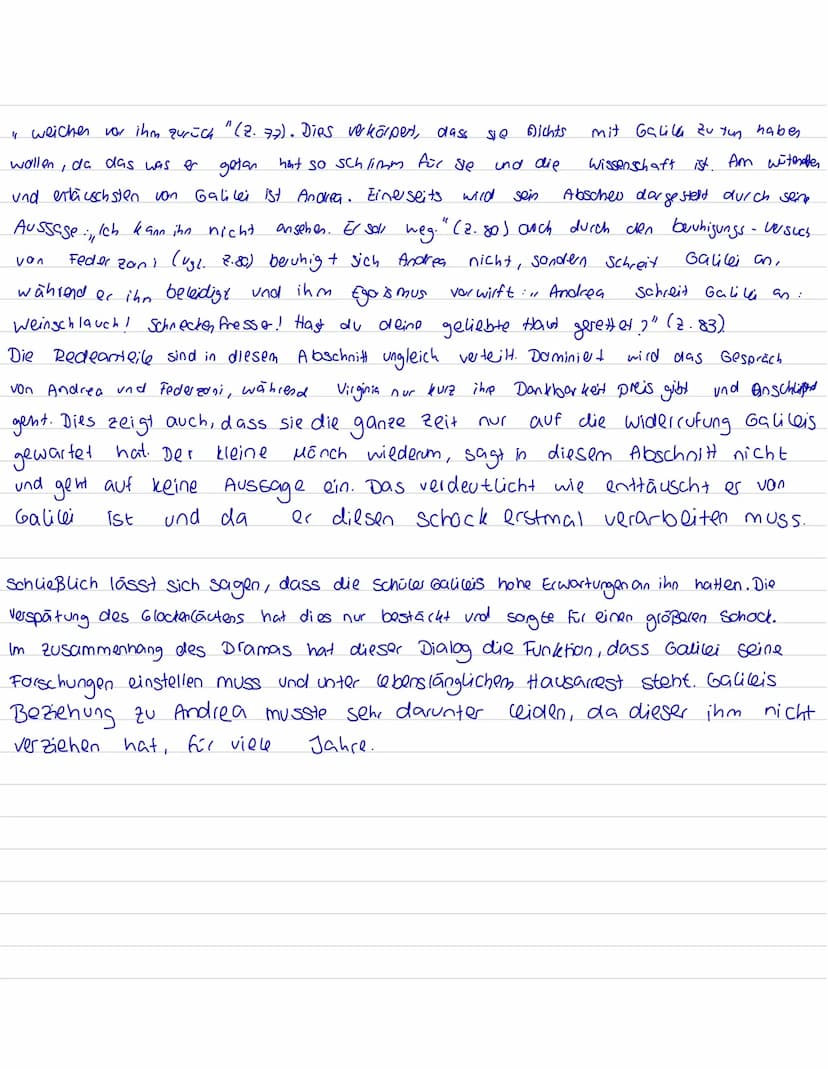 „ weichen vor ihm zurück " (Z. 77). Dies verkörpert, dass sie nichts mit Galilei zu tun haben
wollen, da das was er getan hat so schlimm für sie und die Wissenschaft ist. Am wütendsten
und entäuschsten von Galilei ist Andrea. Einerseits wird sein Abscheu dargestellt durch seine
Aussage: „Ich kann ihn nicht ansehen. Er soll weg." (Z. 80) auch durch den beruhigungs-versuch
von Federzoni (vgl. Z. 82) beruhigt sich Andrea nicht, sondern schreit Galilei an,
während er ihn beleidigt und ihm Egoismus vorwirft: „ Andrea schreit Galilei an:
Weinschlauch! Schneckenfresser! Hast du deine geliebte Haut gerettet?" (Z. 83)
Die Redeanteile sind in diesem Abschnitt ungleich verteilt. Dominiert wird das Gespräch
von Andrea und Federzoni, während Virginia nur kurz ihre Dankbarkeit preis gibt und anschließend
geht. Dies zeigt auch, dass sie die ganze Zeit nur auf die Widerrufung Galileis
gewartet hat. Der kleine Mönch wiederum, sagt in diesem Abschnitt nicht
und geht auf keine Aussage ein. Das verdeutlicht wie enttäuscht er von
Galilei ist und da er diesen Schock erstmal verarbeiten muss.
Schließlich lässt sich sagen, dass die Schüler Galileis hohe Erwartungen an ihn hatten. Die
Verspätung des Glockenläutens hat dies nur bestäckt und sorgte für einen größeren Schock.
Im Zusammenhang des Dramas hat dieser Dialog die Funktion, dass Galilei seine
Forschungen einstellen muss und unter lebenslänglichem Hausarrest steht. Galileis
Beziehung zu Andrea musste sehr darunter leiden, da dieser ihm nicht
verziehen hat, für viele Jahre.